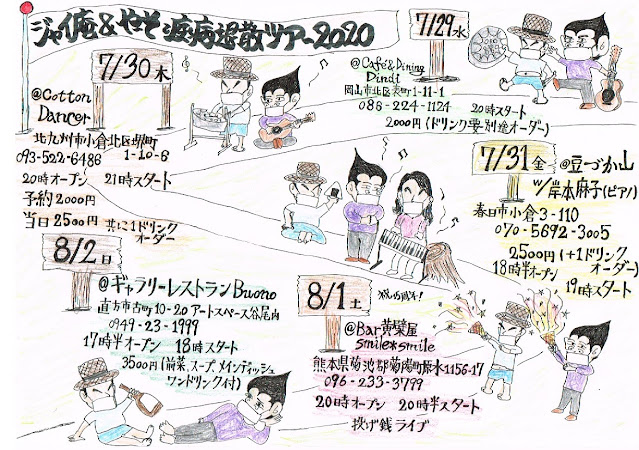 ジャイ庵&やっそ 疫病退散ツアー2020
7/29水
@Café&Dining
Dindi
岡山市北区表町1-11-1
086-224-1124
20時スタート
2000円(ドリンク要・別途オーダー)
7/30木
@Cotton
Dancer
北九州市小倉北区堺町
1-10-6
093-522-6486
20時オープン 21時スタート
予約2000円
当日2500円 共に1ドリンク
オーダー
7/31金
@豆づか山
w/岸本麻子(ピアノ)
春日市小倉3-110
070-5692-3005
2500円(+1ドリンク
オーダー)
18時半オープン
19時スタート
8/1土
@Bar黄菜屋
smile*smile
熊本県菊池郡菊陽町原水1156-17
096-233-3799
20時オープン 20時半スタート
投げ銭ライブ
8/2日
@ギャラリーレストランBuono
直方市古町10-20アートスペース谷尾内
0949-23-1999
17時半オープン 18時スタート
3500円(前菜、スープ、メインディッシュ
ワンドリンク付)